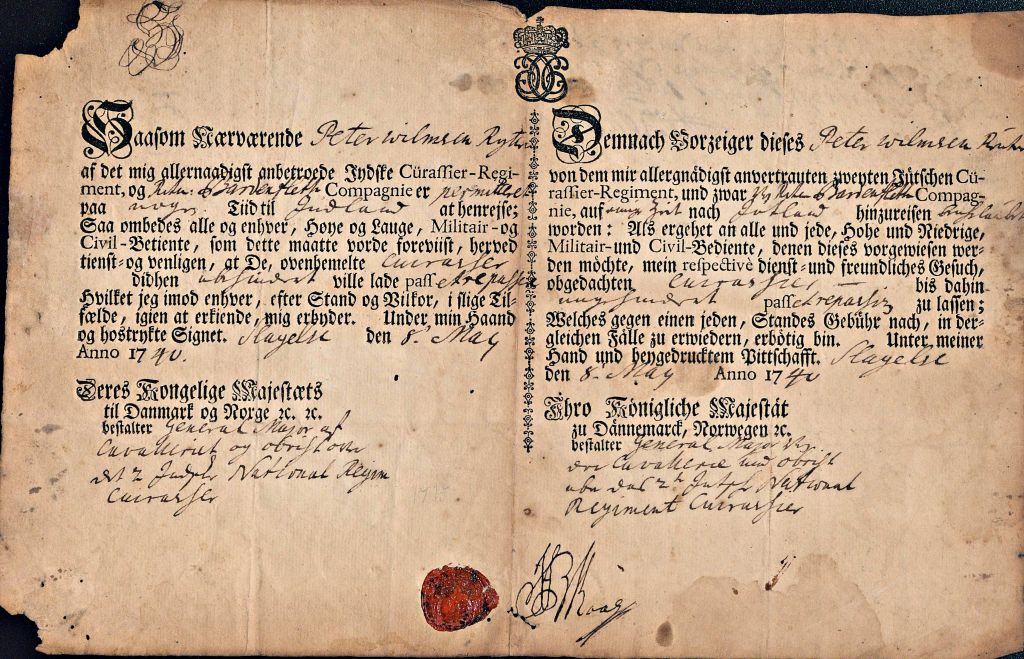 Saasom Nærværende Peter Wilmsen Rytter
af det mig allernaadigst anbetroede Jydske Cürassier-Regi-
ment, og Barrenfleth Compagnie er permitteret
paa nogen Tiid til Judland at henrejse;
Saa ombedes alle og enhver, Høye og Lauge, Militair- og
Civil-Betiente, som dette maatte vorde foreviist, herved
tienst- og venligen, at De, ovenbemelte Cuirasser
didhen uhindret ville lade pass et repasser
Hvilket jeg imod enhver, efter Stand og Vilkor, i slige Til-
fælde, igien at erkiende, mig erbyder. Under min Haand
og hostrykte Signet. Slagelse den 8. May
Anno 1740.
Deres Kongelige Majestæts
til Danmark og Norge ꝛc. ꝛc.
bestalter General Major af
Cavalleriet og obrist over
det 2 National Regim
Cuirasser
Demnach Vorzeiger dieses Peter Wilmsen
von dem mir allergnädigst anvertrauten zweyten Jütschen Cü-
rassier-Regiment, und zwar Barrenfleth Compag-
nie, auf einige Zeit nach Jutland hinzureisen
worden: Als ergehet an alle und jede, Hohe und Niedrige,
Militair- und Civil-Bediente, denen dieses vorgewiesen wer-
den möchte, mein respectivè dienst- und freundliches Gesuch,
obgedachten Cuirassier bis dahin
ungehindert pass et repassir zu lassen;
Welches gegen einen jeden, Standes Gebühr nach, in der-
gleichen Fälle zu erwiedern, erbötig bin. Unter meiner
Hand und beygedrucktem Pittschafft. Slagelse
den 8. May Anno 1740
Ihro Königliche Majestät
zu Dännemarck, Norwegen ꝛc.
bestalter General Major
der Cavallerie und obrist
das 2 National
Regiment Cuirassier